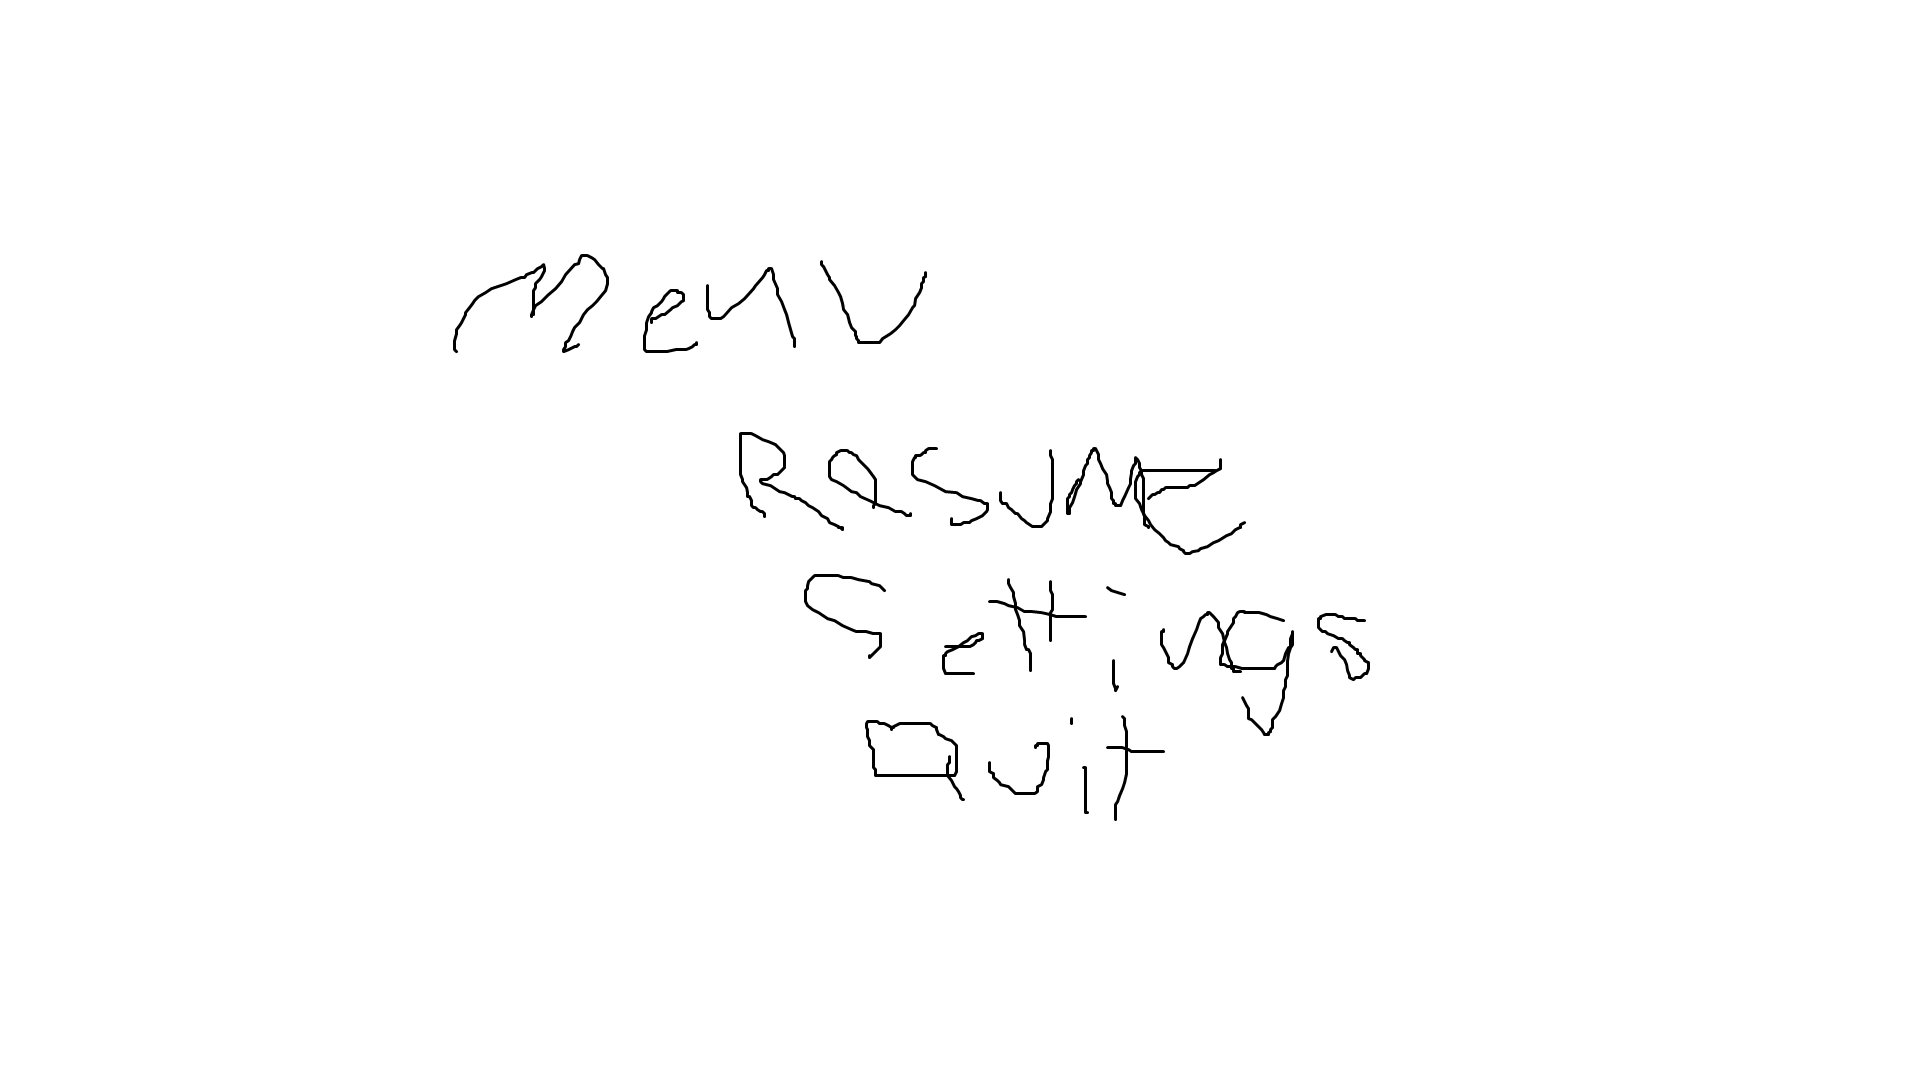 Menu
Resume
Settings
Quit